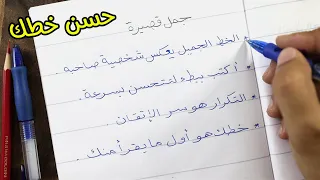 حسن خطك
جمل قصيرة
* الخط الجميل يعكس شخصية صاحبه .
* أكتب ببطء لتتحسن بسرعة .
* التكرار هو سر الإتقان .
* خطك هو أول ما يقرأ منك .